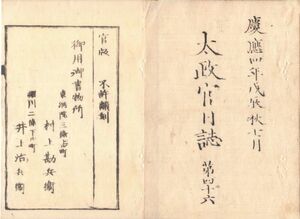 慶應四年戊辰秋七月
太政官日誌 第四十六
官版 不許翻刻
御用御書物所
東洞院三條上ル町
村上勘兵衛
堀川二條下ル町
井上治兵衛